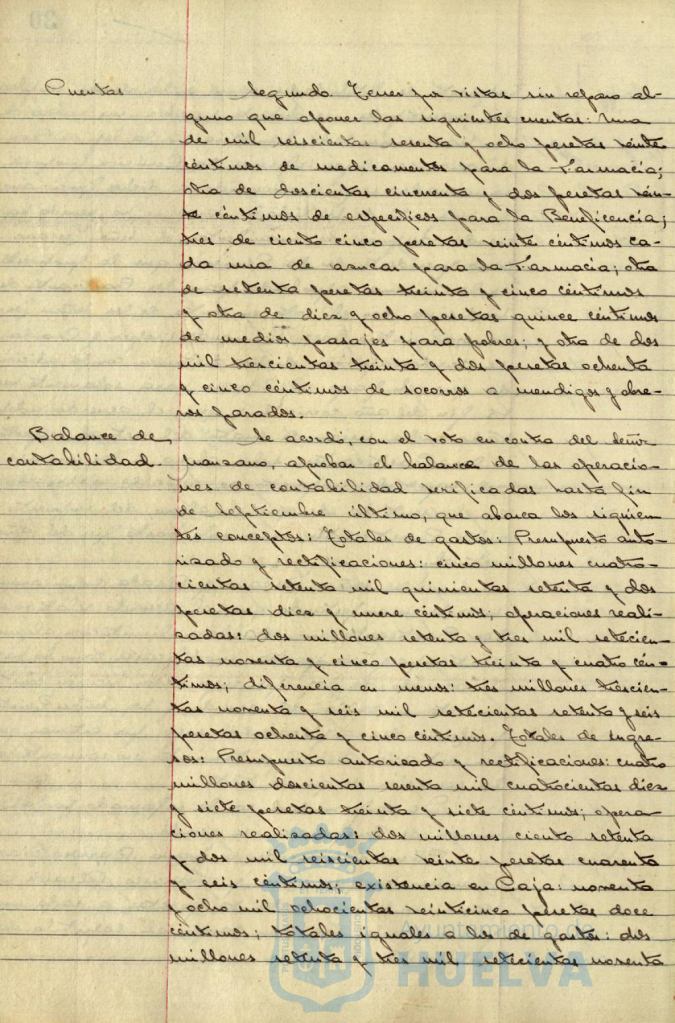 Cuentas
Segundo. Tener por vistas sin reparo al-
guno que oponer las siguientes cuentas: Una
de mil seiscientas sesenta y ocho pesetas veinte
céntimos de medicamentos para la Farmacia;
otra de doscientas cincuenta y dos pesetas vein-
te céntimos de específicos para la Beneficencia;
tres de ciento cinco pesetas veinte céntimos ca-
da una de azucar para la Farmacia; otra
de setenta pesetas treinta y cinco céntimos
y otra de diez y ocho pesetas quince céntimos
de medios pasajes para pobres; y otra de dos
mil trescientas treinta y dos pesetas ochenta
y cinco céntimos de socorros a mendigos y obre-
ros parados.
Balance de
contabilidad.
Se acordó, con el voto en contra del Señor
Manzano, aprobar el balance de las operacio-
nes de contabilidad verificadas hasta fin
de Septiembre último, que abarca los siguien-
tes conceptos: Totales de gastos: Presupuesto auto-
rizado y rectificaciones: cinco millones cuatro-
cientas setenta mil quinientas setenta y dos
pesetas diez y nueve céntimos; operaciones reali-
zadas: dos millones setenta y tres mil setecien-
tas noventa y cinco pesetas treinta y cuatro cén-
timos; diferencia en menos: tres millones trescien-
tas noventa y seis mil setecientas setenta y seis
pesetas ochenta y cinco céntimos. Totales de ingre-
sos: Presupuesto autorizado y rectificaciones: cuatro
millones doscientas sesenta mil cuatrocientas diez
y siete pesetas treinta y siete céntimos; opera-
ciones realizadas: dos millones ciento setenta
y dos mil seiscientas veinte pesetas cuarenta
y seis céntimos; existencia en Caja: noventa
y ocho mil ochocientas veinticinco pesetas doce
céntimos; totales iguales a los de gastos: dos
millones setenta y tres mil setecientas noventa
Ayuntamiento de
HUELVA